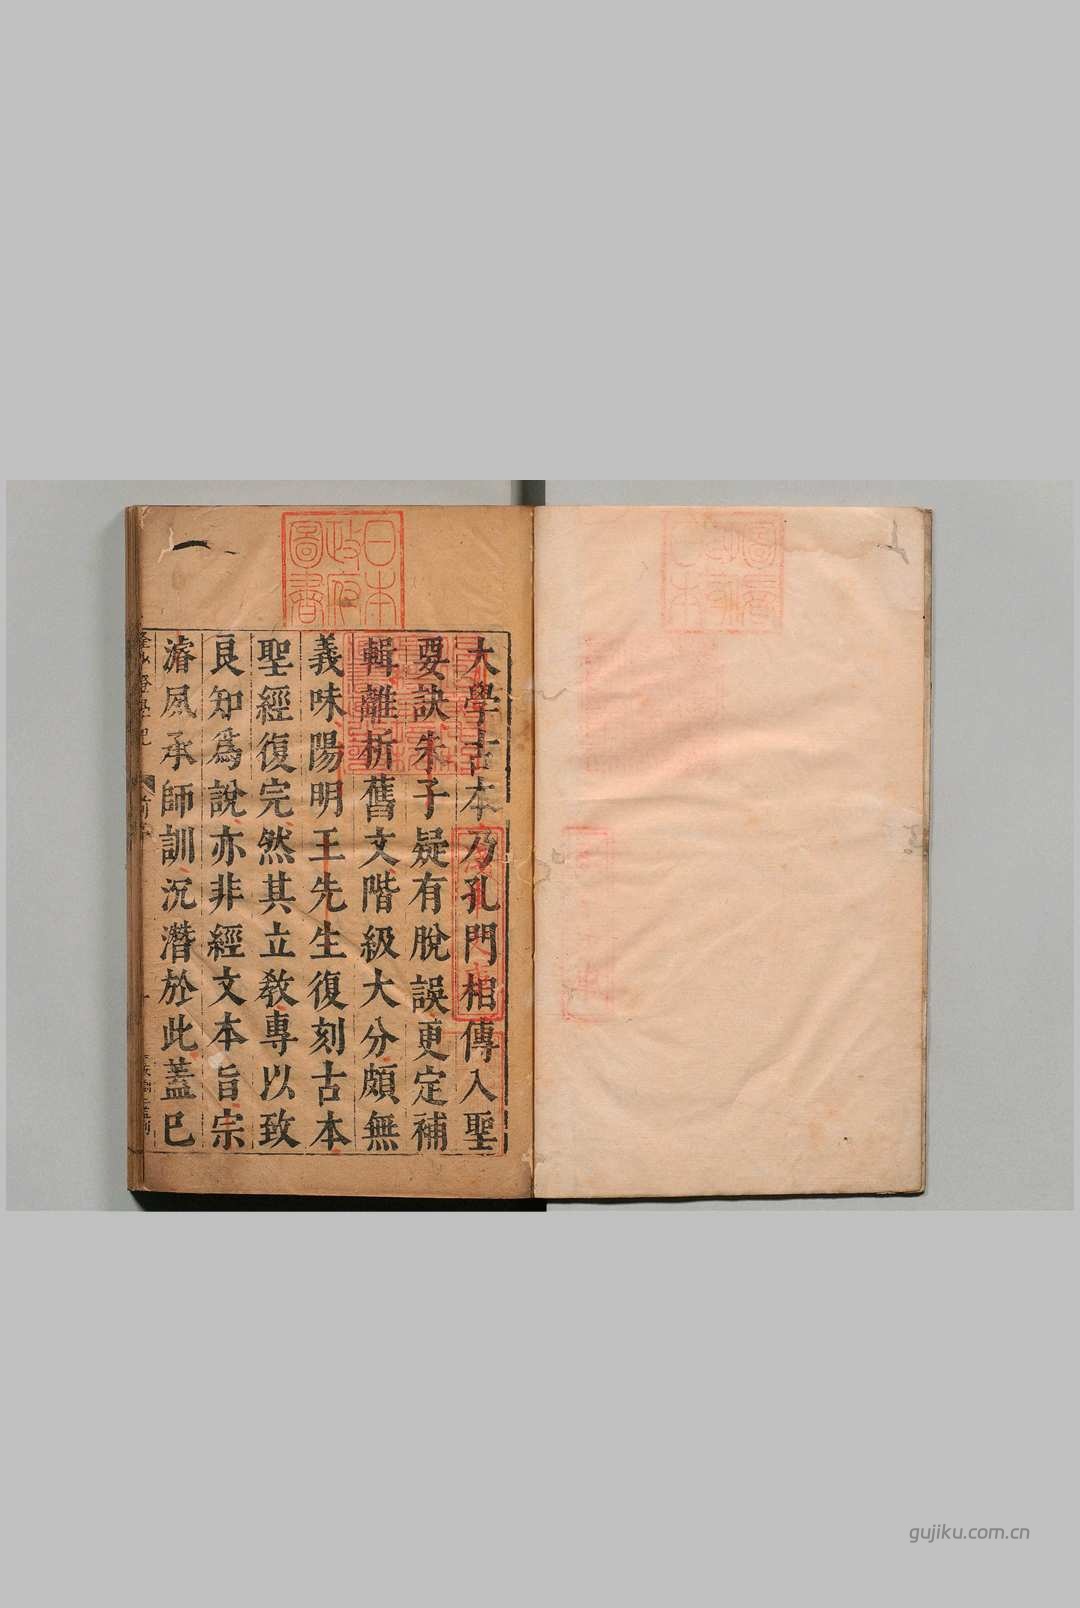 大學古本乃孔門相傳入聖
要訣朱子疑有脫誤更定補
輯離析舊文階級大分頗無
義味陽明王先生復刻古本
聖經復完然其立教專以致
良知為說亦非經文本旨宗
濬夙承師訓沉潛於此蓋已
日本
政府
圖書
gujiku.com.cn